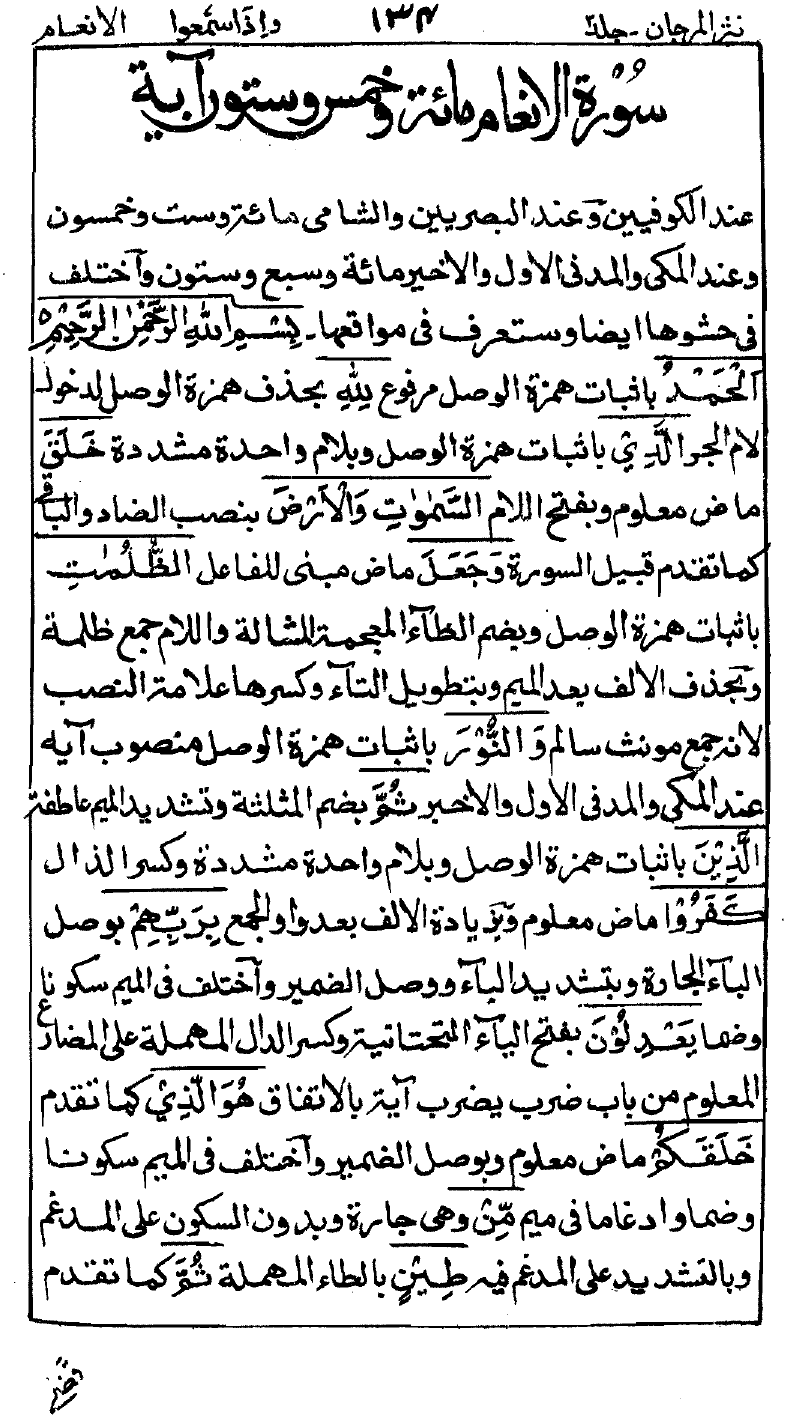 نثر المرجان - جلد ٢ ١٣٤ وإذا سمعوا الانعام
سورة الانعام مائة وخمس وستون آية
عند الكوفيين وعند البصريين والشامى مائة وست وخمسون
وعند المكى والمدنى الاول والاخير مائة وسبع وستون وآختلف
فى حشوها ايضا وستعرف فى مواقعها ـ بِسْمِ اللهِ الرَّحْمٰنِ الرَّحِيْمِ ٥
اَلْحَمْدُ باثبات همزة الوصل مرفوع لِلّٰهِ بحذف همزة الوصل لدخول
لام الجر الَّذِيْ باثبات همزة الوصل وبلام واحدة مشددة خَلَقَ
ماض معلوم وبفتح اللام السَّمٰوٰتِ وَالْاَرْضَ بنصب الضاد والباقى
كما تقدم قبيل السورة وَجَعَلَ ماض مبنى للفاعل الظُّلُمٰتِ
باثبات همزة الوصل وبضم الظآء المعجمة المشالة واللام جمع ظلمة
وبحذف الالف بعد الميم وبتطويل التآء وكسرها علامة النصب
لانه جمع مونث سالم وَالنُّوْرَ باثبات همزة الوصل منصوب آيه
عند المكى والمدنى الاول والاخير ثُمَّ بضم المثلثة وتشديد الميم عاطفة
الَّذِيْنَ باثبات همزة الوصل وبلام واحدة مشددة وكسر الذال
كَفَرُوْا ماض معلوم وبزيادة الالف بعد واو الجمع بِرَبِّهِمْ بوصل
البآء الجارة وبتشديد البآء ووصل الضمير وآختلف فى الميم سكونا
وضما يَعْدِلُوْنَ بفتح اليآء التحتانية وكسر الدال المهملة على المضارع
المعلوم من باب ضرب يضرب آية بالاتفاق هُوَ الَّذِيْ كما تقدم
خَلَقَكُمْ ماض معلوم وبوصل الضمير وآختلف فى الميم سكونا
وضما وادغاما فى ميم مِّنْ وهى جارة وبدون السكون على المدغم
وبالتشديد على المدغم فيه طِيْنٍ بالطاء المهملة ثُمَّ كما تقدم